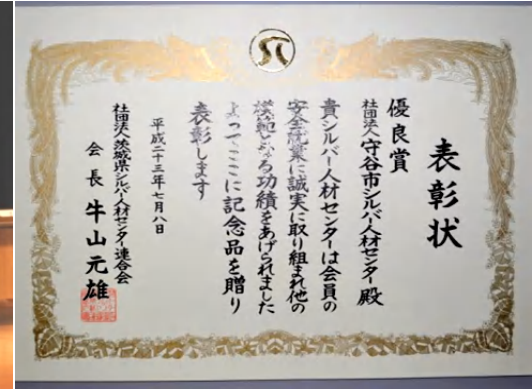 表彰状
優良賞
社団法人守谷市シルバー人材センター殿
貴シルバー人材センターは会員の
安全就業に誠実に取り組まれ他の
模範となる功績をあげられました
よってここに記念品を贈り
表彰します
平成二十三年七月八日
社団法人茨城県シルバー人材センター連合会
会長 牛山元雄